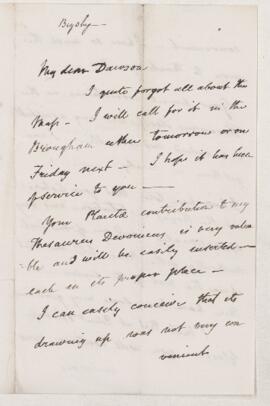 Bigsby
My dear Dawson
I quite forgot all about the
Map - I will call for it in the
Brougham either tomorrow or on
Friday next - I hope it has been
of service to you —
Your Plantae contribution to my
Thesaurus Devonicus is very valua
ble and will be easily inserted —
each in its proper place —
I can easily conceive that its
drawing up was not very con
venient